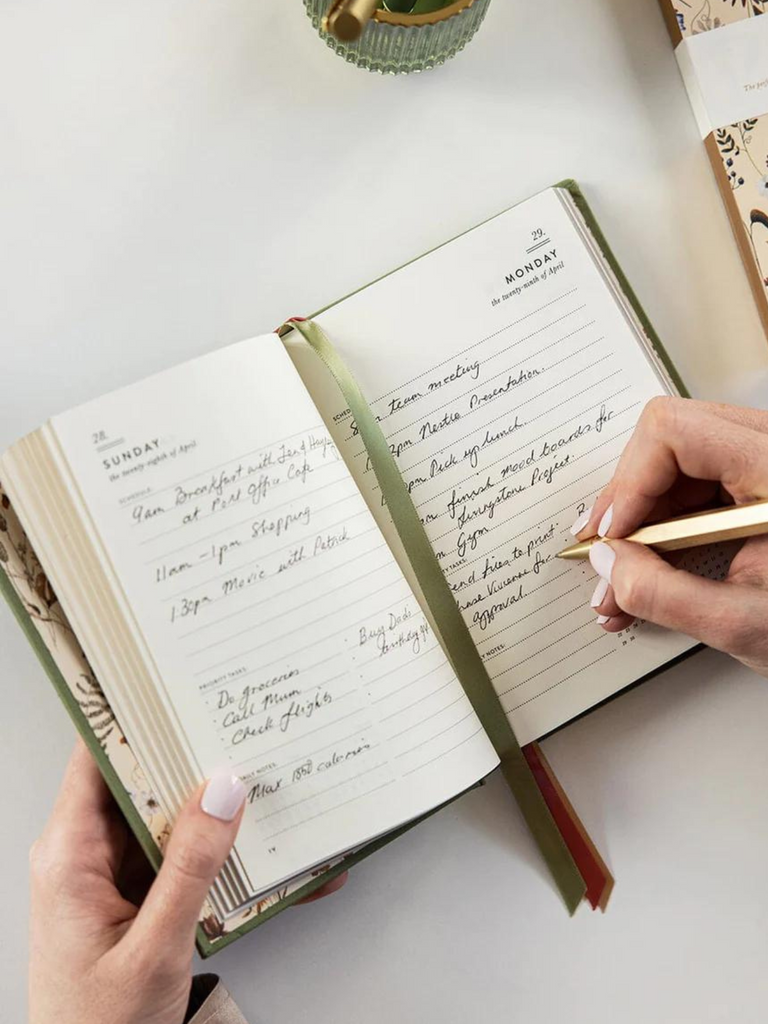 28.
SUNDAY
the twenty-eighth of April
SCHEDULE
9am Breakfast with Jen &
at Port Office Cafe
11am - 1pm Shopping
1.30pm Movie with Patrick
PRIORITY TASKS
Do groceries
Call Mum
Check flights
Buy Dad
DAILY NOTES
Max 1850 calories
29.
MONDAY
the twenty-ninth of April
team meeting
2pm Nestle Presentation.
pm Pick up lunch.
finish mood boards for
Livingstone Project.
Gym
TASKS
Send files to print
Vivienne for
approval.
2.
NOTES